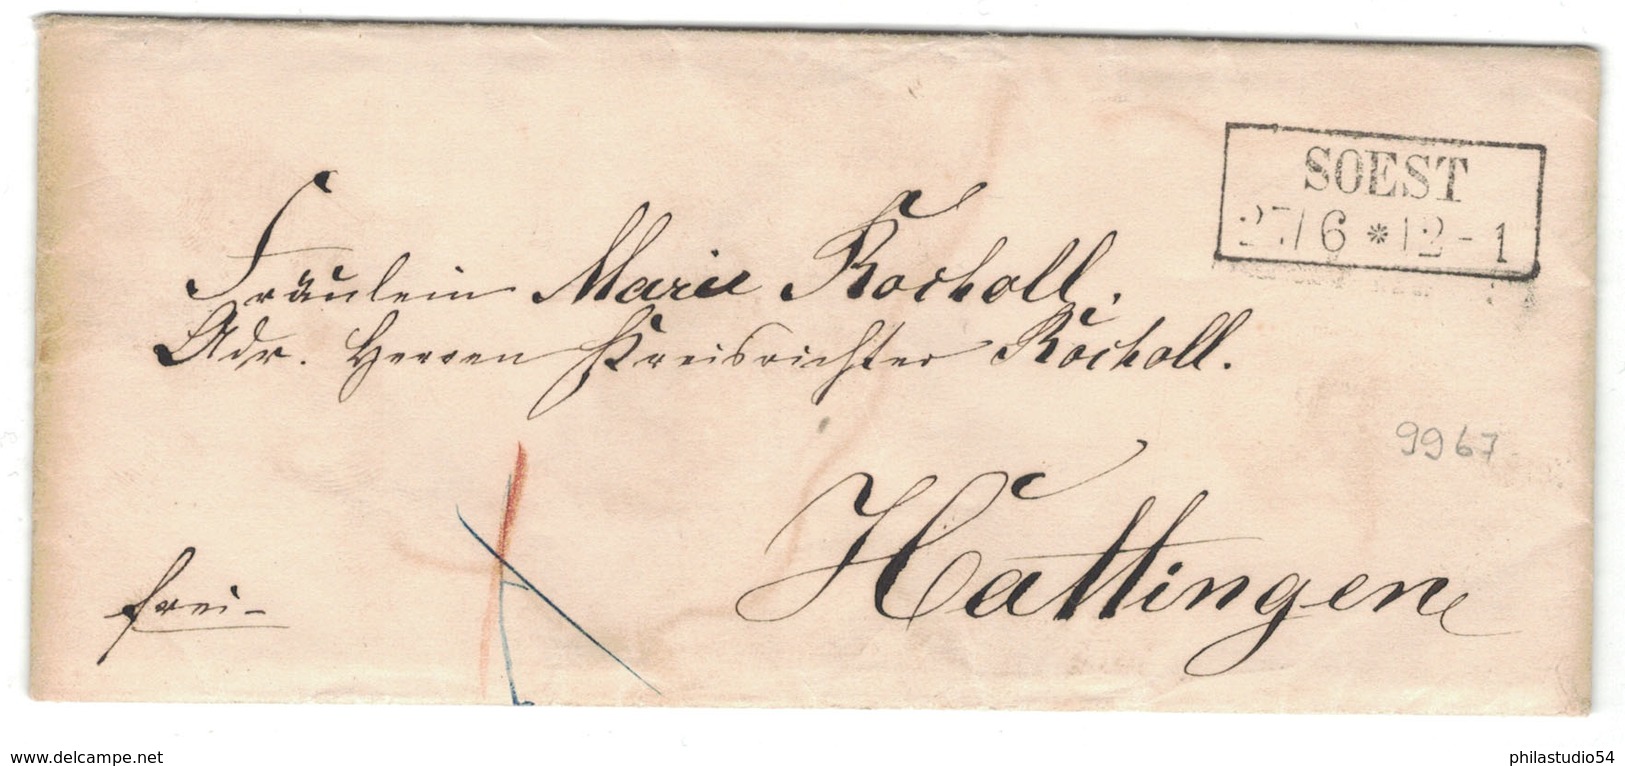 SOEST
27/6 * 12-1
Fräulein Marie Rocholl.
Adr. Herren Kreisrichter Rocholl.
9967
Hattingen
frei-
www.delcampe.net
philastudio54